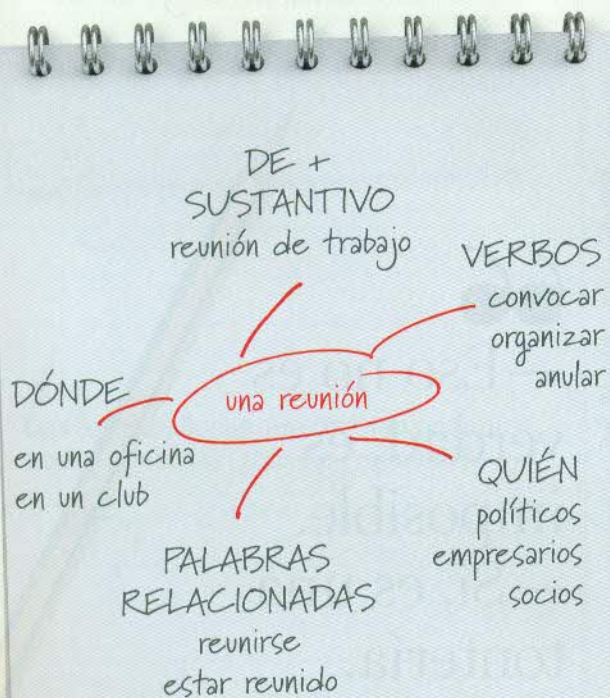 DE +
SUSTANTIVO
reunión de trabajo
VERBOS
convocar
organizar
anular
DÓNDE
en una oficina
en un club
una reunión
QUIÉN
políticos
empresarios
socios
PALABRAS
RELACIONADAS
reunirse
estar reunido